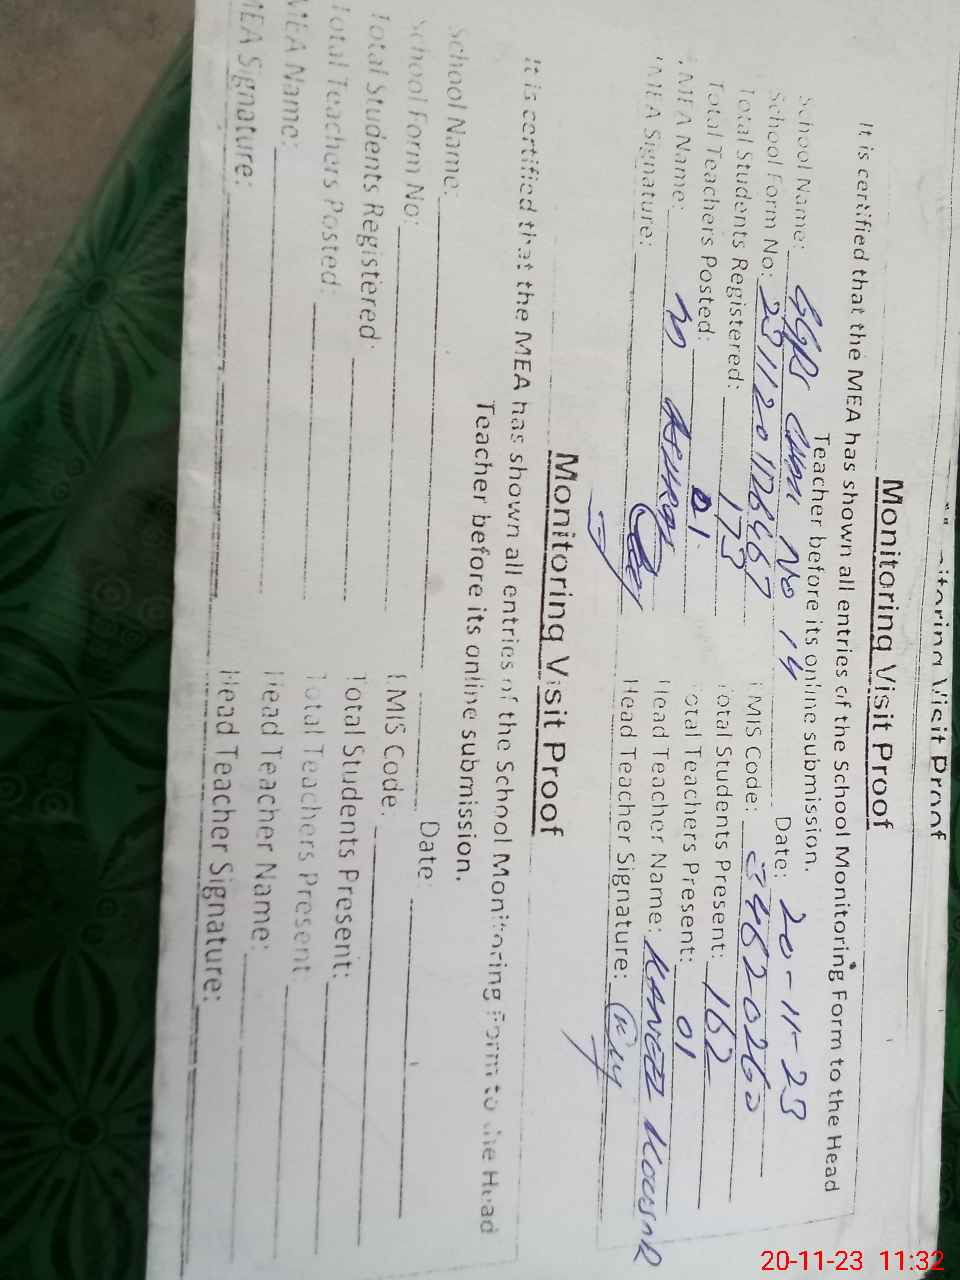 Monitoring Visit Proof
Monitoring Visit Proof
It is certified that the MEA has shown all entries of the School Monitoring Form to the Head
Teacher before its online submission.
School Name: GGPS No 14 Date: 20-11-23
School Form No: EMIS Code:
Total Students Registered: 173 Total Students Present: 162
Total Teachers Posted: 01 Total Teachers Present: 01
MEA Name: M Head Teacher Name: KANEEZ KOUSAR
MEA Signature: Head Teacher Signature:
Monitoring Visit Proof
It is certified that the MEA has shown all entries of the School Monitoring Form to the Head
Teacher before its online submission.
School Name: Date:
School Form No: EMIS Code:
Total Students Registered: Total Students Present:
Total Teachers Posted: Total Teachers Present
MEA Name: Head Teacher Name:
MEA Signature: Head Teacher Signature:
20-11-23 11:32